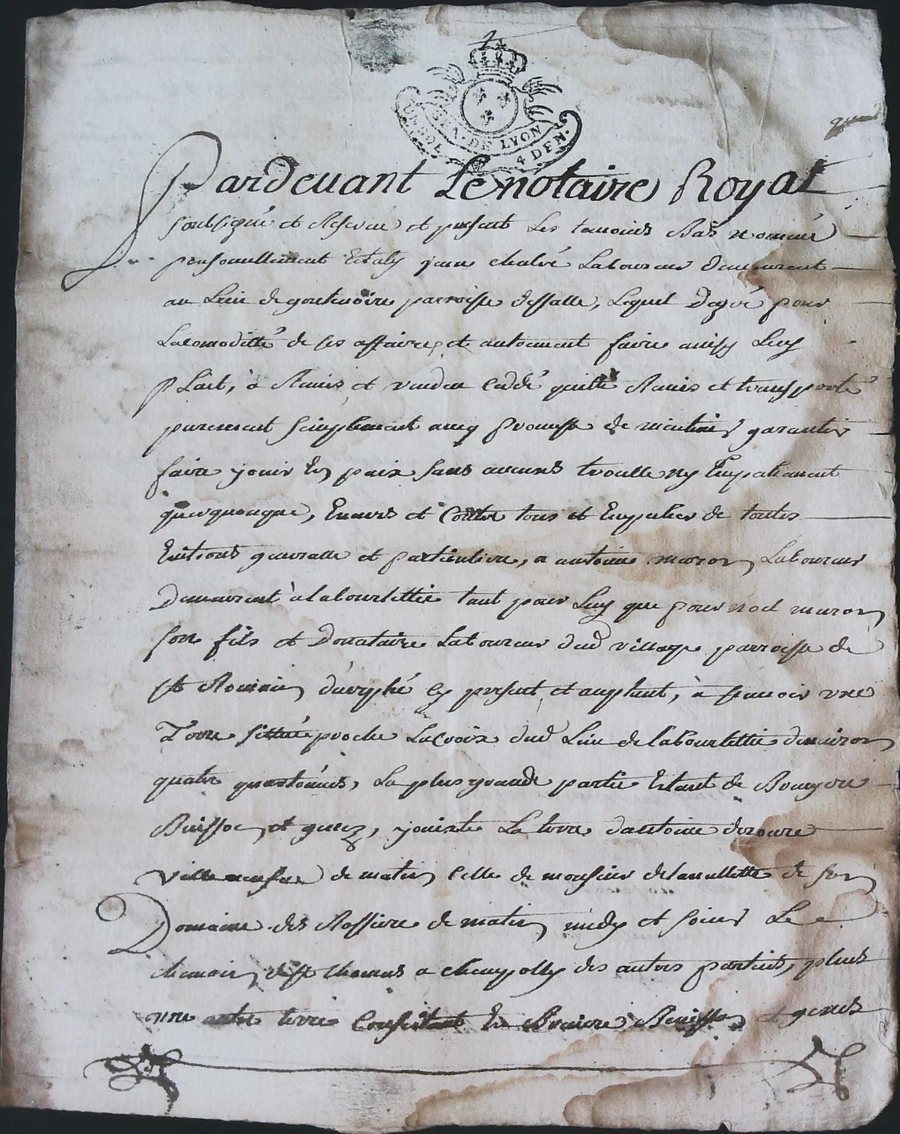 GEN. DE LYON
UN SOL 4 DEN.
Pardevant Le notaire Royal
soubsigné et Reservé et present Les temoins Bas nommés
personnellement Estably chalvé Laboureur demeurant
au Lieu de parroisse dessalle, Lequel degré pour
Lacomoditté de ses affaires et autrement faire ainsy Luy
plait, à Remis et vendu ceddé quitté Remis et transporté
purement simplement avec promesse de maintenir garantir
faire jouir En paix sans aucuns trouble ny Empechement
quelquonque, Envers et Contre tous et de toutes
Evictions generalle et particuliere, a antoine moron Laboureur
Demeurant à labourlettie tant pour Luy que pour noel moron
son fils et Donataire Laboureur dud village parroisse de
st Romain d'urphé cy present et acceptant, à sçavoir une
Terre sittuée proche Lacroix dud Lieu de labourlettie denviron
quatre, La plus grande partie Estant de Bruyere
Buisson et genez, jouixte La terre dantoine
de matin celle de monsieur de son
Domaine des de matin midy et soir Le
chemin de st thomas a des autres parties, plus
une autre terre Consistant En Bruiere Buisson et genez